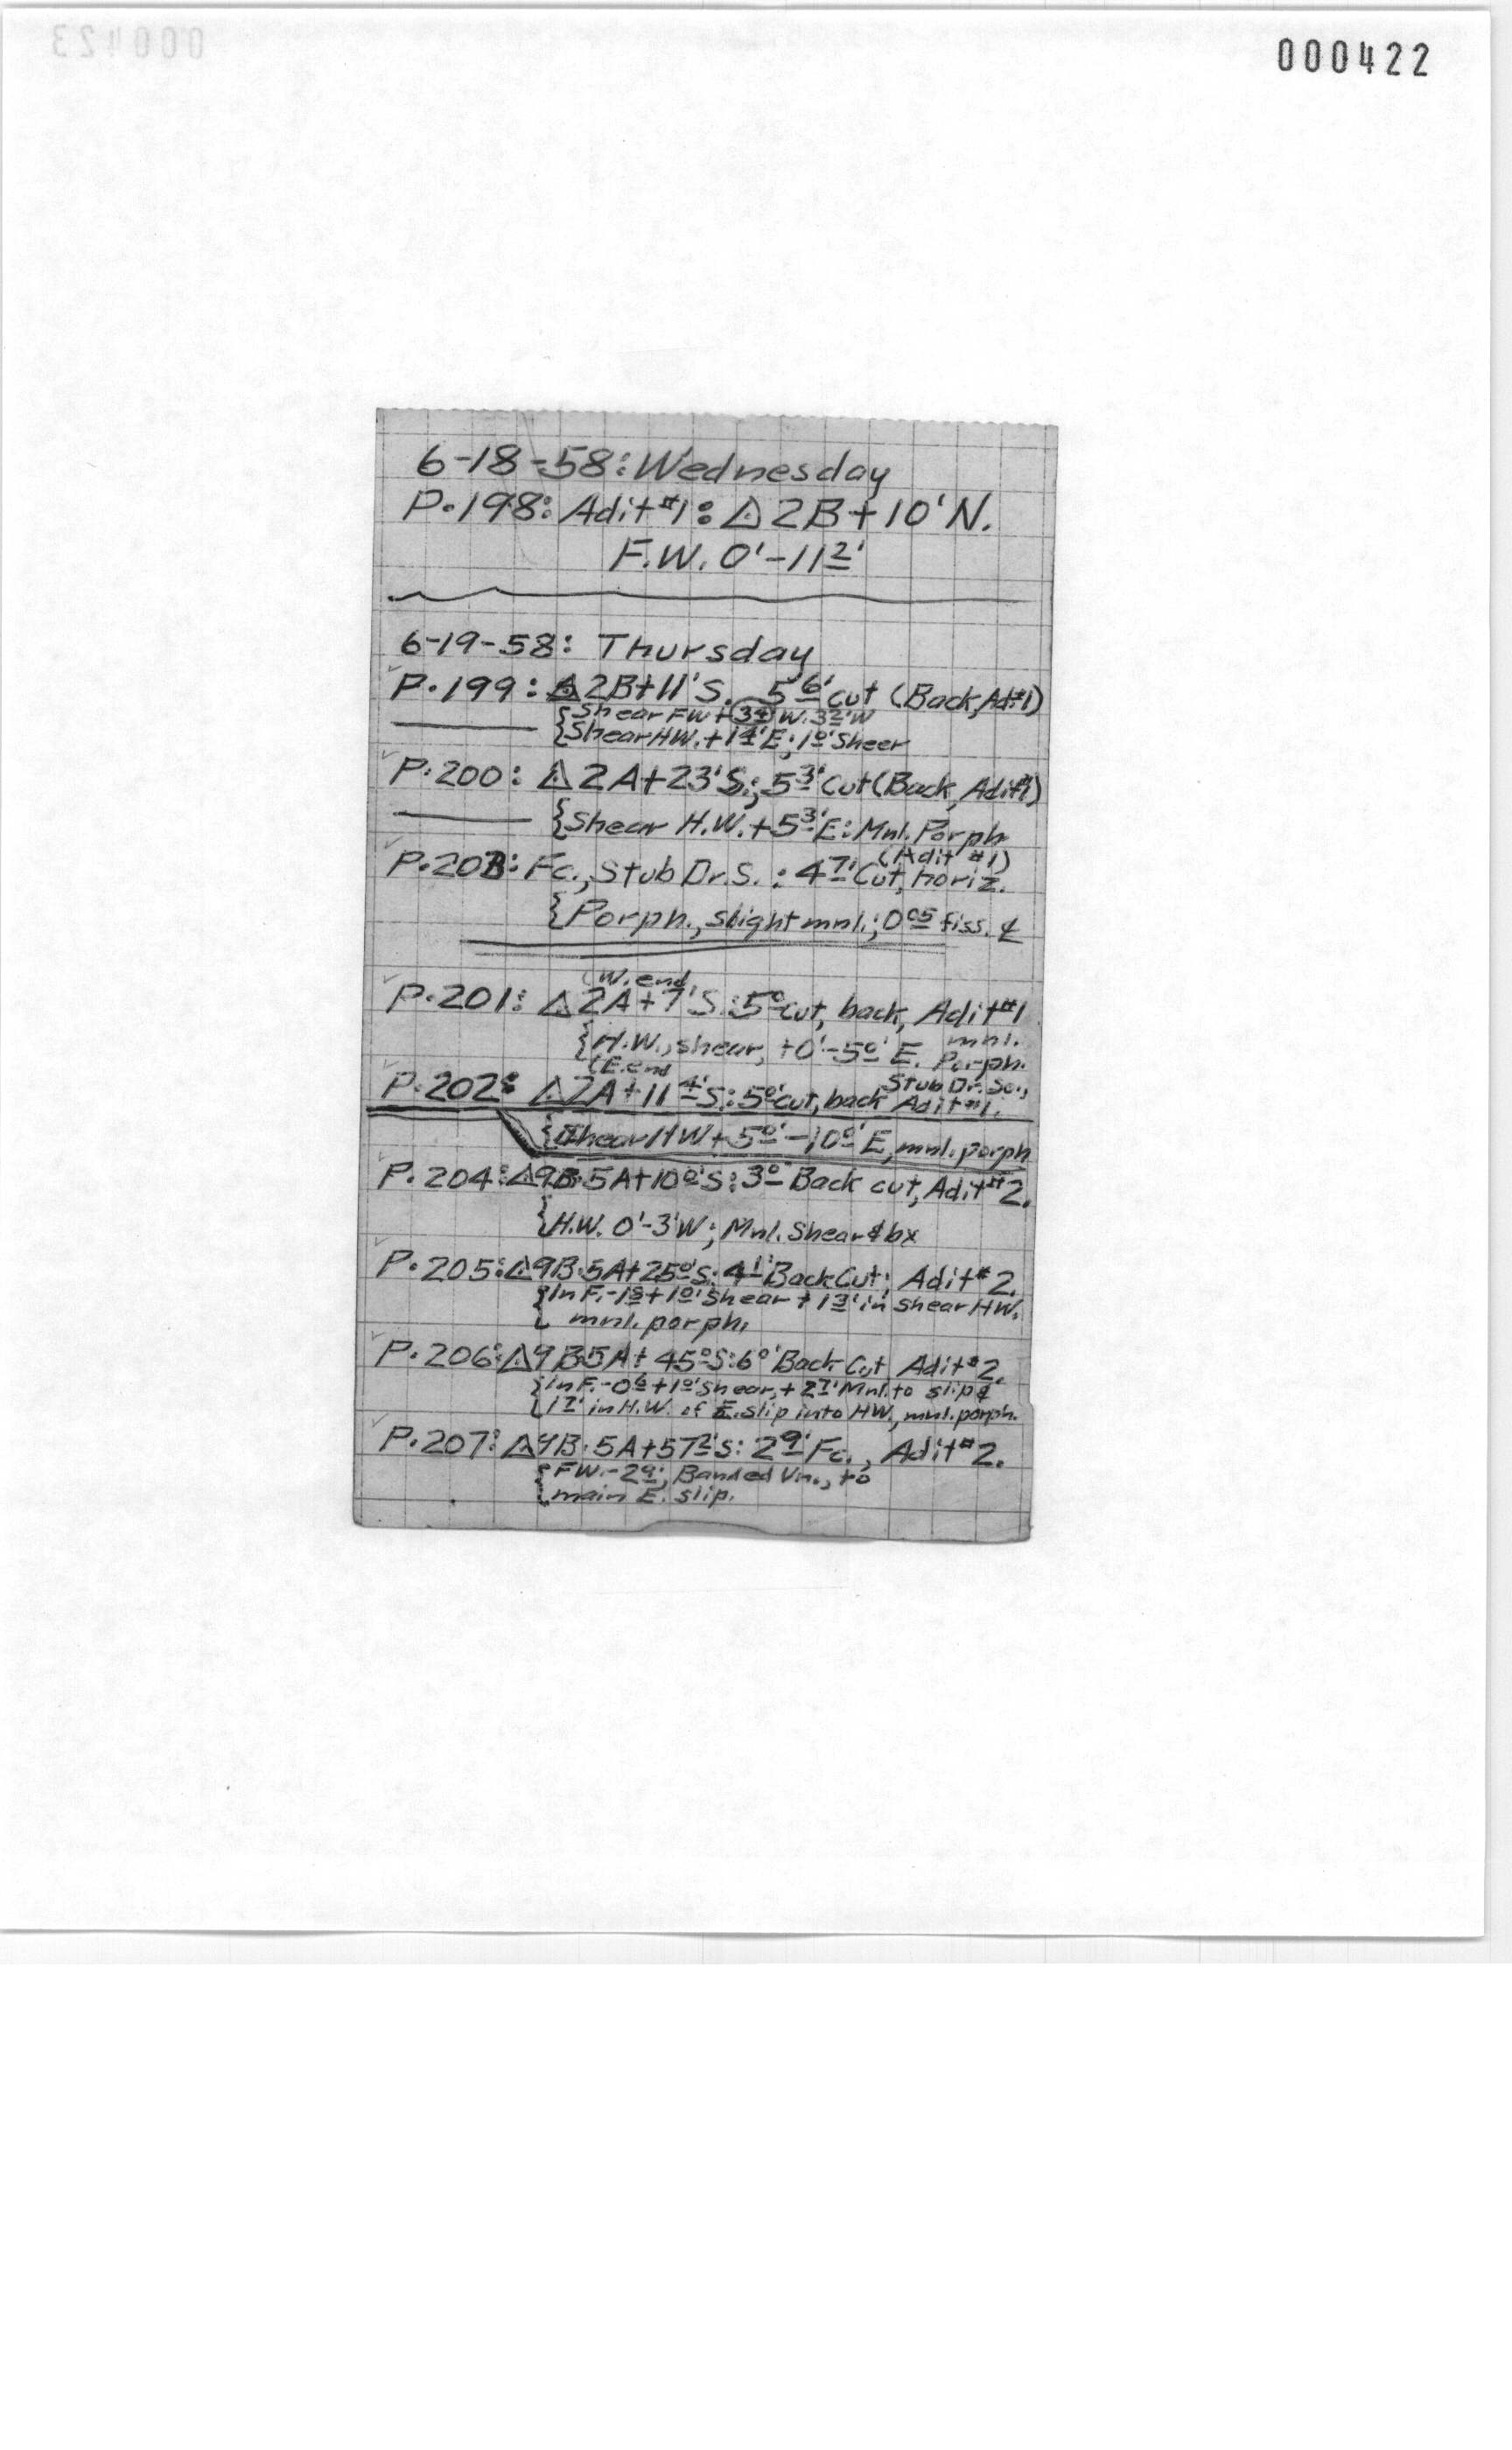 000422
6-18-58: Wednesday
P.198: Adit #1: △2B+10'N.
F.W. 0'-11 2'
6-19-58: Thursday
P.199: △2B+11'S. 5 6' cut (Back, Adit #1)
{Shear FW + 3 4 W. 3 2' W
{Shear HW. + 1 4' E; 1 0' Sheer
P.200: △2A+23'S.; 5 3' Cut (Back, Adit #1)
{Shear H.W. + 5 3' E: Mnl. Porph
(Adit #1)
P.203: Fc., Stub Dr. S.: 4 7' Cut, horiz.
{Porph., slight mnl.; 0 05 fiss. ¢
(W. end
P.201: △2A+7'S.: 5 0 cut, back, Adit #1
{H.W., shear, +0'-5 0' E. mnl. Porph.
(E. end Stub Dr. So.,
P.202: △2A+11 4' S.: 5 0' cut, back Adit #1.
{Shear HW + 5 0'-10 0' E, mnl. porph
P.204: △9B·5A+10 0' S: 3 0 Back cut, Adit #2.
{H.W. 0'-3'W; Mnl. Shear & bx
P.205: △9B·5A+25 0' S: 4 1' Back Cut; Adit #2.
{In F. -1 8 + 1 0' Shear + 1 3' in shear HW.
mnl. porph.
P.206: △9B·5A+45 0 S: 6 0' Back Cut, Adit #2.
{In F. -0 6 + 1 0' Shear, + 2 7' Mnl. to slip &
{1 7' in H.W. of E. slip into HW., mnl. porph.
P.207: △9B·5A+57 2' S: 2 9' Fc., Adit #2.
{FW. -2 9'; Banded Vn., to
{main E. slip.